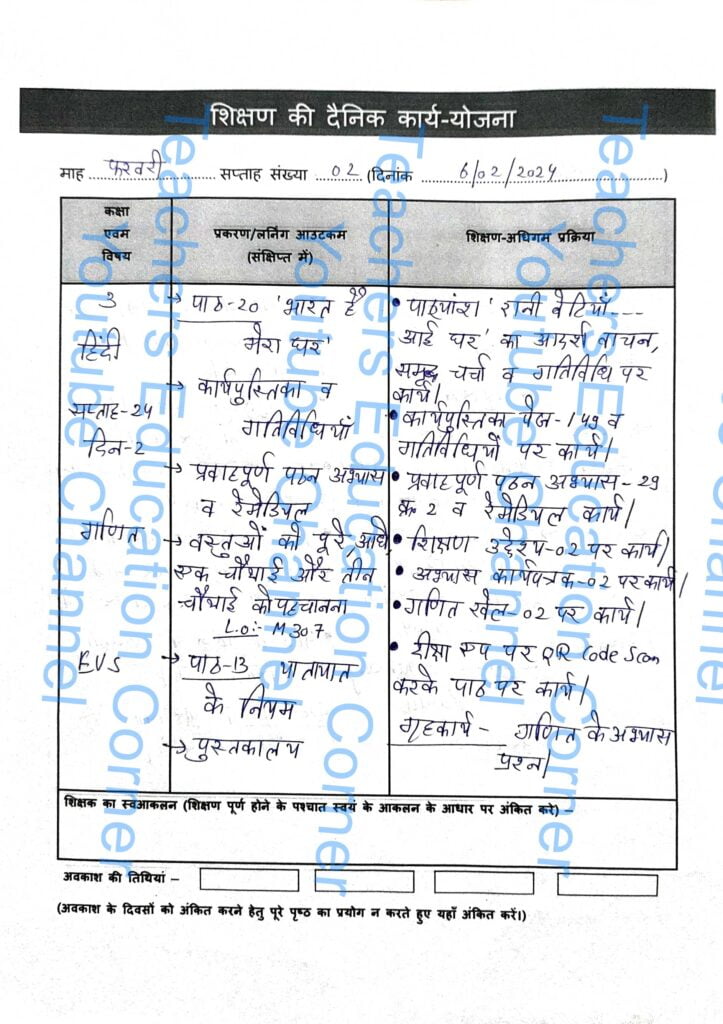 शिक्षण की दैनिक कार्य-योजना
माह फरवरी सप्ताह संख्या 02 (दिनांक 6/02/2024)
कक्षा एवम विषय
प्रकरण/लर्निंग आउटकम (संक्षिप्त में)
शिक्षण-अधिगम प्रक्रिया
3
हिंदी
सप्ताह-24
दिन-2
→ पाठ-20 'भारत है
मेरा घर'
→ कार्यपुस्तिका व
गतिविधियाँ
→ प्रवाहपूर्ण पठन अभ्यास
व रेमेडियल
• पाठ्यांश 'रानी बेटियाँ---
आई घर' का आदर्श वाचन,
समूह चर्चा व गतिविधि पर
कार्य।
• कार्यपुस्तिका पेज-149 व
गतिविधियों पर कार्य।
• प्रवाहपूर्ण पठन अभ्यास-29
क्र 2 व रेमेडियल कार्य।
गणित
→ वस्तुओं को पूरे, आधे,
एक चौथाई और तीन
चौथाई को पहचानना
L.O:- M307
• शिक्षण उद्देश्य-02 पर कार्य।
• अभ्यास कार्यपत्रक-02 पर कार्य।
• गणित खेल-02 पर कार्य।
EVS
→ पाठ-13 यातायात
के नियम
→ पुस्तकालय
• दीक्षा एप पर QR Code Scan
करके पाठ पर कार्य।
गृहकार्य - गणित के अभ्यास
प्रश्न।
शिक्षक का स्वआकलन (शिक्षण पूर्ण होने के पश्चात स्वयं के आकलन के आधार पर अंकित करे) –
अवकाश की तिथियां –
(अवकाश के दिवसों को अंकित करने हेतु पूरे पृष्ठ का प्रयोग न करते हुए यहाँ अंकित करें।)
Teachers Education Corner
Youtube Channel